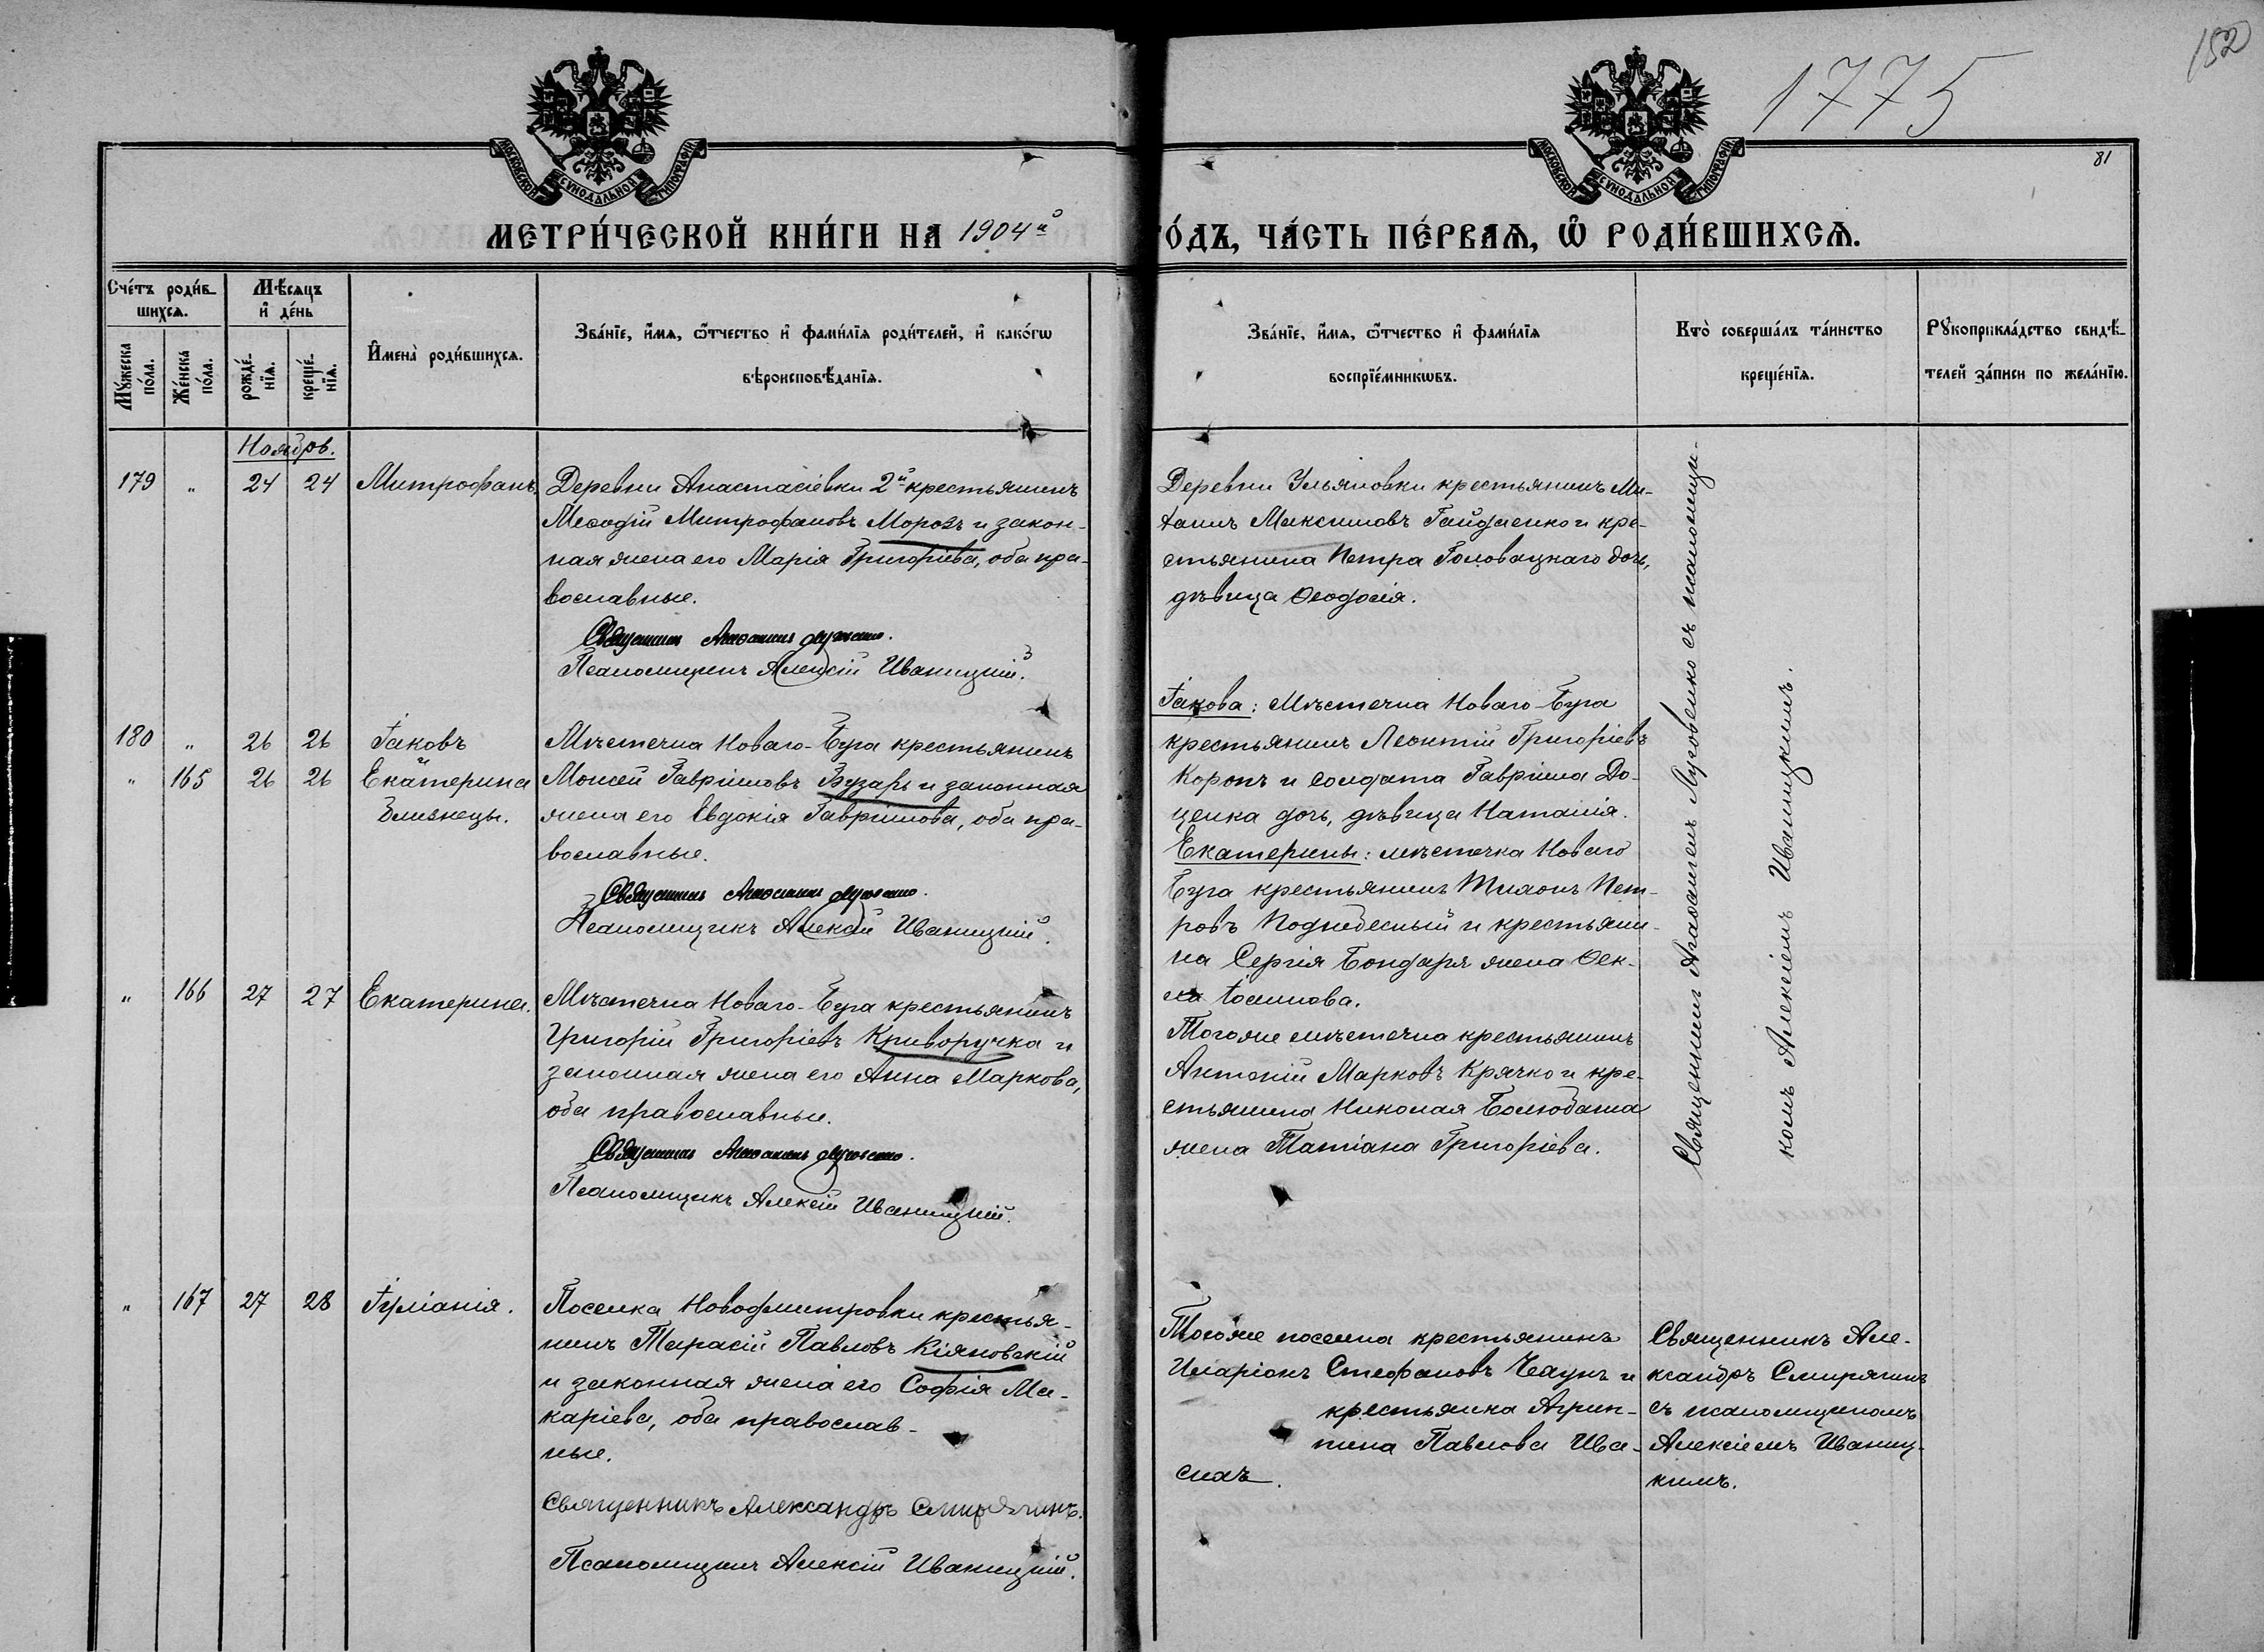 152
1775
81
МОСКОВСКОЙ СѴНОДАЛЬНОЙ ТИПОГРАФІИ
МОСКОВСКОЙ СѴНОДАЛЬНОЙ ТИПОГРАФІИ
МЕТРИ́ЧЕСКОЙ КНИ́ГИ НА 1904й
ГО́ДЪ, ЧА́СТЬ ПЕ́РВАѦ, Ѡ РОДИ́ВШИХСѦ.
Сче́тъ роди́в-
шихсѧ.
Мꙋ́жеска по́ла.
Же́нска по́ла.
Мѣ́сѧцъ
и҆ де́нь
рожде́-
нїѧ.
креще́-
нїѧ.
И҆мена̀ роди́вшихсѧ.
Зва́нїе, и҆́мѧ, ѻ҆́тчество и҆ фами́лїѧ роди́телей, и҆ како́гѡ
вѣроисповѣ́данїѧ.
Зва́нїе, и҆́мѧ, ѻ҆́тчество и҆ фами́лїѧ
воспрїе́мникѡвъ.
Кто̀ соверша́лъ та́инство
креще́нїѧ.
Рꙋкоприкла́дство свидѣ́-
телей за́писи по жела́нїю.
Ноябрь.
179 " 24 24 Митрофанъ.
Деревни Анастасіевки 2й крестьянинъ
Меѳодій Митрофановъ Морозъ и закон-
ная жена его Марія Григоріева, оба пра-
вославные.
Священникъ
Псаломщикъ Алексій Иваницкій.
Деревни Ульяновки крестьянинъ Ми-
хаилъ Максимовъ Гайдаенко и кре-
стьянина Петра Головацкаго дочь,
дѣвица Ѳеодосія.
180 " 26 26 Іаковъ
и
" 165 26 26 Екатерина
близнецы.
Мѣстечка Новаго-Буга крестьянинъ
Моисей Гавріиловъ Бузарь и законная
жена его Евдокія Гавріилова, оба пра-
вославные.
Священникъ
Псаломщикъ Алексій Иваницкій.
Іакова: Мѣстечка Новаго-Буга
крестьянинъ Леонтій Григоріевъ
Коропъ и солдата Гавріила До-
ценка дочь, дѣвица Наталія.
Екатерины: мѣстечка Новаго
Буга крестьянинъ Тихонъ Пет-
ровъ Поднебесный и крестьяни-
на Сергія Бондаря жена Ѳек-
ла Іоаннова.
" 166 27 27 Екатерина.
Мѣстечка Новаго-Буга крестьянинъ
Григорій Григоріевъ Криворучка и
законная жена его Анна Маркова,
оба православные.
Священникъ
Псаломщикъ Алексій Иваницкій.
Тогоже мѣстечка крестьянинъ
Антоній Марковъ Крячко и кре-
стьянина Николая Болюбаша
жена Татіана Григоріева.
Священникъ Агаѳангелъ Луговенко съ псаломщи-
комъ Алексіемъ Иваницкимъ.
" 167 27 28 Іуліанія.
Поселка Новодмитровки крестья-
нинъ Тарасій Павловъ Кіяновскій
и законная жена его Софія Ма-
каріева, оба православ-
ные.
Священникъ Александръ Смирягинъ.
Псаломщикъ Алексій Иваницкій.
Тогоже поселка крестьянинъ
Иларіонъ Стефановъ Чаунъ и
крестьянка Агрип-
пина Павлова Ива-
Священникъ Але-
ксандръ Смирягинъ
съ псаломщикомъ
Алексіемъ Иваниц-
кимъ.